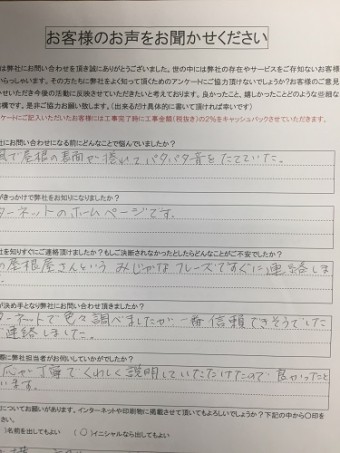 お客様のお声をお聞かせください
は弊社にお問い合わせを頂き誠にありがとうございました。世の中には弊社の存在やサービスをご存知ないお客様
いらっしゃいます。その方たちに弊社をよく知って頂くためのアンケートにご協力頂けないでしょうか?お客様のご意見
かせいただき今後の活動に反映させていただきたいと考えております。良かったこと、嬉しかったことどのような些細な
構です。是非ご協力お願い致します。(出来るだけ具体的に書いて頂ければ幸いです)
ケートにご記入いただいたお客様には工事完了時に工事金額(税抜き)の2%をキャッシュバックさせていただきます。
社にお問い合わせになる前にどんなことで悩んでいましたか?
風で屋根の表面が捲れてパタパタ音をたてていた。
がきっかけで弊社をお知りになりましたか?
ターネットのホームページです。
社を知りすぐにご連絡頂けましたか?もしご決断されなかったとしたらどんなことがご不安でしたか?
の屋根屋さんという みじかなフレーズですぐに連絡しま
が決め手となり弊社にお問い合わせ頂きましたか?
ターネットで色々調べましたが、一番信頼できそうでした
連絡しました。
際に弊社担当者がお伺いしていかがでしたか?
応が丁寧でくわしく説明していただけたので良かったと
います。
についてお願いがあります。インターネットや印刷物に掲載させて頂いてもよろしいでしょうか?下記の中から〇印を
さい。
)名前を出してもよい (〇)イニシャルなら出してもよい